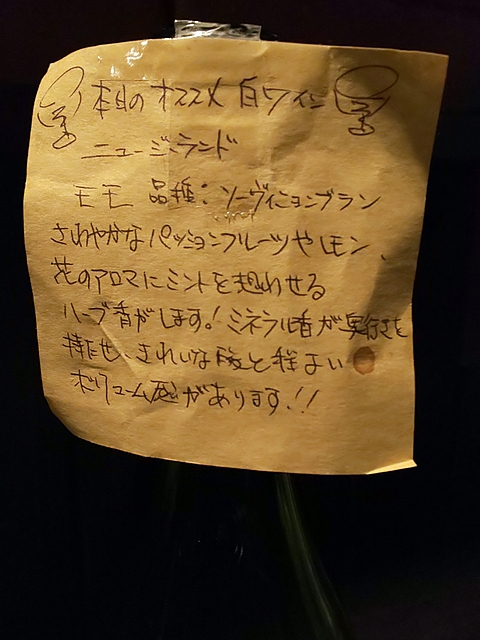 本日のオススメ白ワイン
ニュージーランド
モモ 品種:ソーヴィニョンブラン
さわやかなパッションフルーツやレモン、
花のアロマにミントを想わせる
ハーブ香がします!ミネラル香が奥行きを
持たせ、きれいな酸と程よい
ボリューム感があります!!